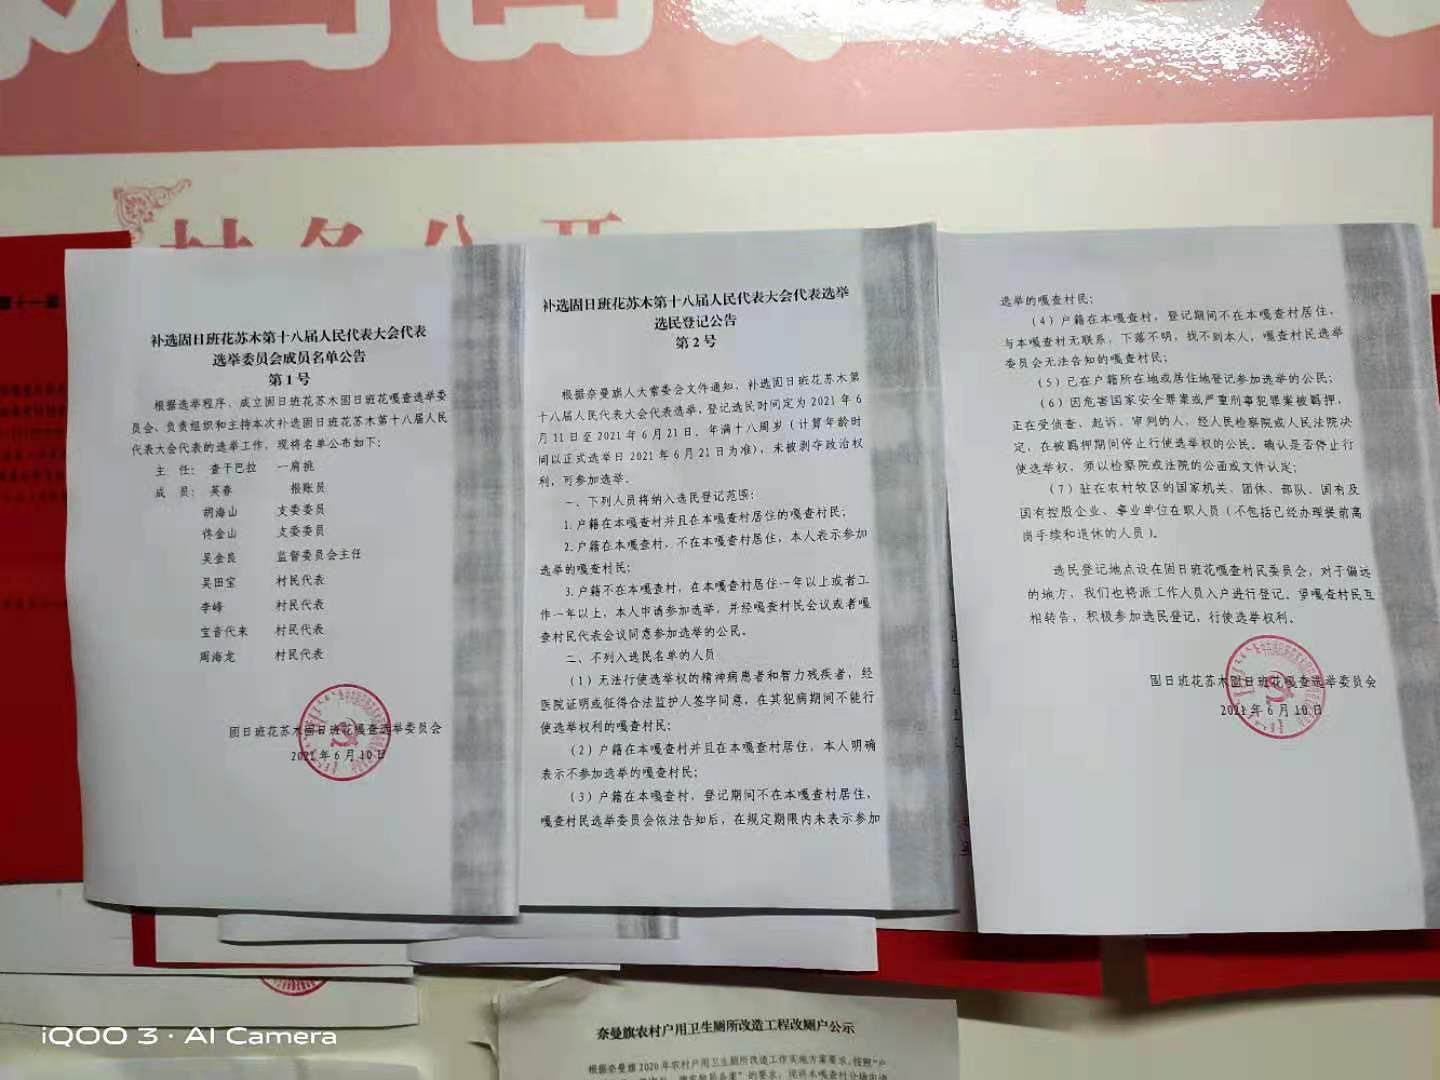 村务公开
补选固日班花苏木第十八届人民代表大会代表
选举委员会成员名单公告
第1号
根据选举程序，成立固日班花苏木固日班花嘎查选举委
员会、负责组织和主持本次补选固日班花苏木第十八届人民
代表大会代表的选举工作，现将名单公布如下：
主 任： 查干巴拉 一肩挑
成 员： 英春 报账员
胡海山 支委委员
佟金山 支委委员
吴金良 监督委员会主任
吴田宝 村民代表
李峰 村民代表
宝音代来 村民代表
周海龙 村民代表
固日班花苏木固日班花嘎查选举委员会
2021年6月10日
补选固日班花苏木第十八届人民代表大会代表选举
选民登记公告
第2号
根据奈曼旗人大常委会文件通知，补选固日班花苏木第
十八届人民代表大会代表选举，登记选民时间定为2021年6
月11日至2021年6月21日。年满十八周岁（计算年龄时
间以正式选举日2021年6月21日为准），未被剥夺政治权
利，可参加选举。
一、下列人员将纳入选民登记范围：
1.户籍在本嘎查村并且在本嘎查村居住的嘎查村民；
2.户籍在本嘎查村，不在本嘎查村居住，本人表示参加
选举的嘎查村民；
3.户籍不在本嘎查村，在本嘎查村居住一年以上或者工
作一年以上，本人申请参加选举，并经嘎查村民会议或者嘎
查村民代表会议同意参加选举的公民。
二、不列入选民名单的人员
（1）无法行使选举权的精神病患者和智力残疾者，经
医院证明或征得合法监护人签字同意，在其犯病期间不能行
使选举权利的嘎查村民；
（2）户籍在本嘎查村并且在本嘎查村居住，本人明确
表示不参加选举的嘎查村民；
（3）户籍在本嘎查村，登记期间不在本嘎查村居住，
嘎查村民选举委员会依法告知后，在规定期限内未表示参加
选举的嘎查村民；
（4）户籍在本嘎查村，登记期间不在本嘎查村居住，
与本嘎查村无联系，下落不明，找不到本人，嘎查村民选举
委员会无法告知的嘎查村民；
（5）已在户籍所在地或居住地登记参加选举的公民；
（6）因危害国家安全罪案或严重刑事犯罪案被羁押，
正在受侦查、起诉、审判的人，经人民检察院或人民法院决
定，在被羁押期间停止行使选举权的公民。确认是否停止行
使选举权，须以检察院或法院的公函或文件认定；
（7）驻在农村牧区的国家机关、团体、部队、国有及
国有控股企业、事业单位在职人员（不包括已经办理提前离
岗手续和退休的人员）。
选民登记地点设在固日班花嘎查村民委员会，对于偏远
的地方，我们也将派工作人员入户进行登记。望嘎查村民互
相转告，积极参加选民登记，行使选举权利。
固日班花苏木固日班花嘎查选举委员会
2021年6月10日
奈曼旗农村户用卫生厕所改造工程改厕户公示
根据奈曼旗2020年农村户用卫生厕所改造工作实施方案要求，按照“户
iQOO 3 · AI Camera